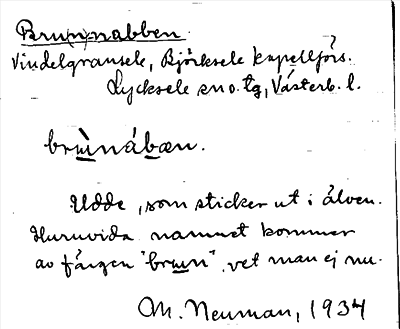 Brun(n)nabben.
Vindelgransele, Björksele kapellförs.
Lycksele sn o. tg, Västerb. l.
brùnábæn.
Udde, som sticker ut i älven.
Huruvida namnet kommer
av färgen "brun", vet man ej nu.
M. Neuman, 1934